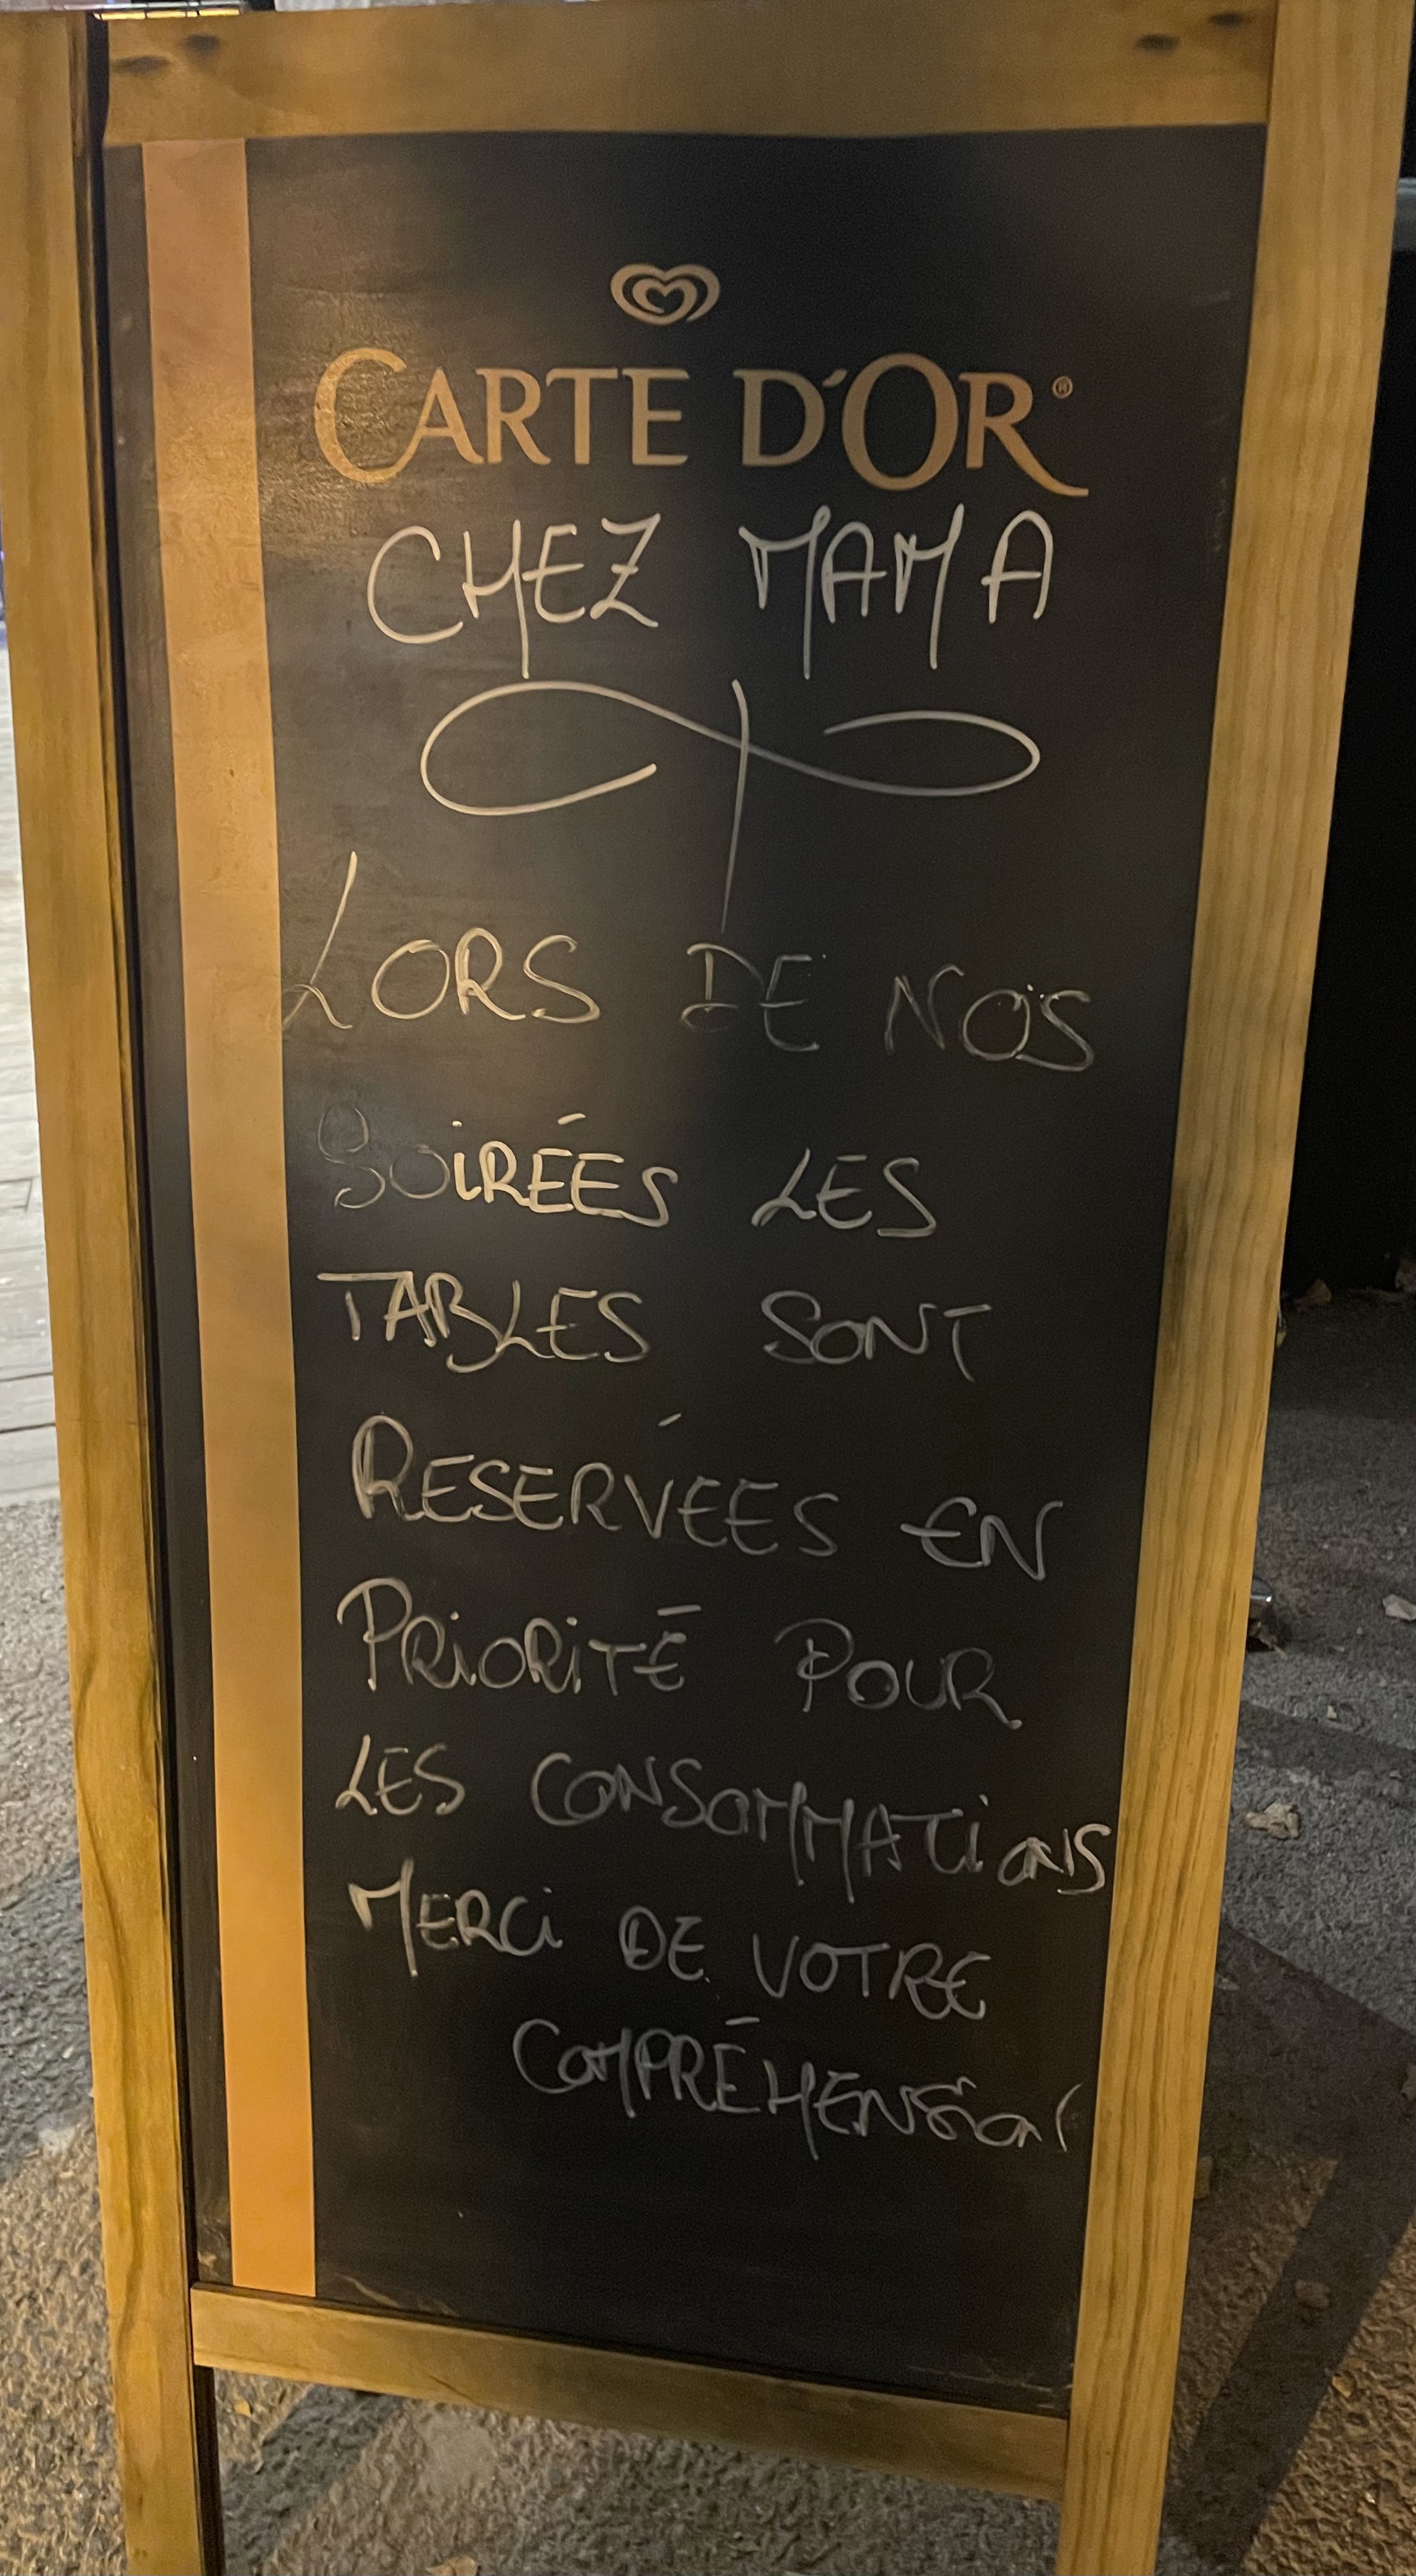 CARTE D'OR®
CHEZ MAMA
LORS DE NOS
SOIRÉES LES
TABLES SONT
RESERVÉES EN
PRIORITÉ POUR
LES CONSOMMATIONS
MERCI DE VOTRE
COMPRÉHENSION